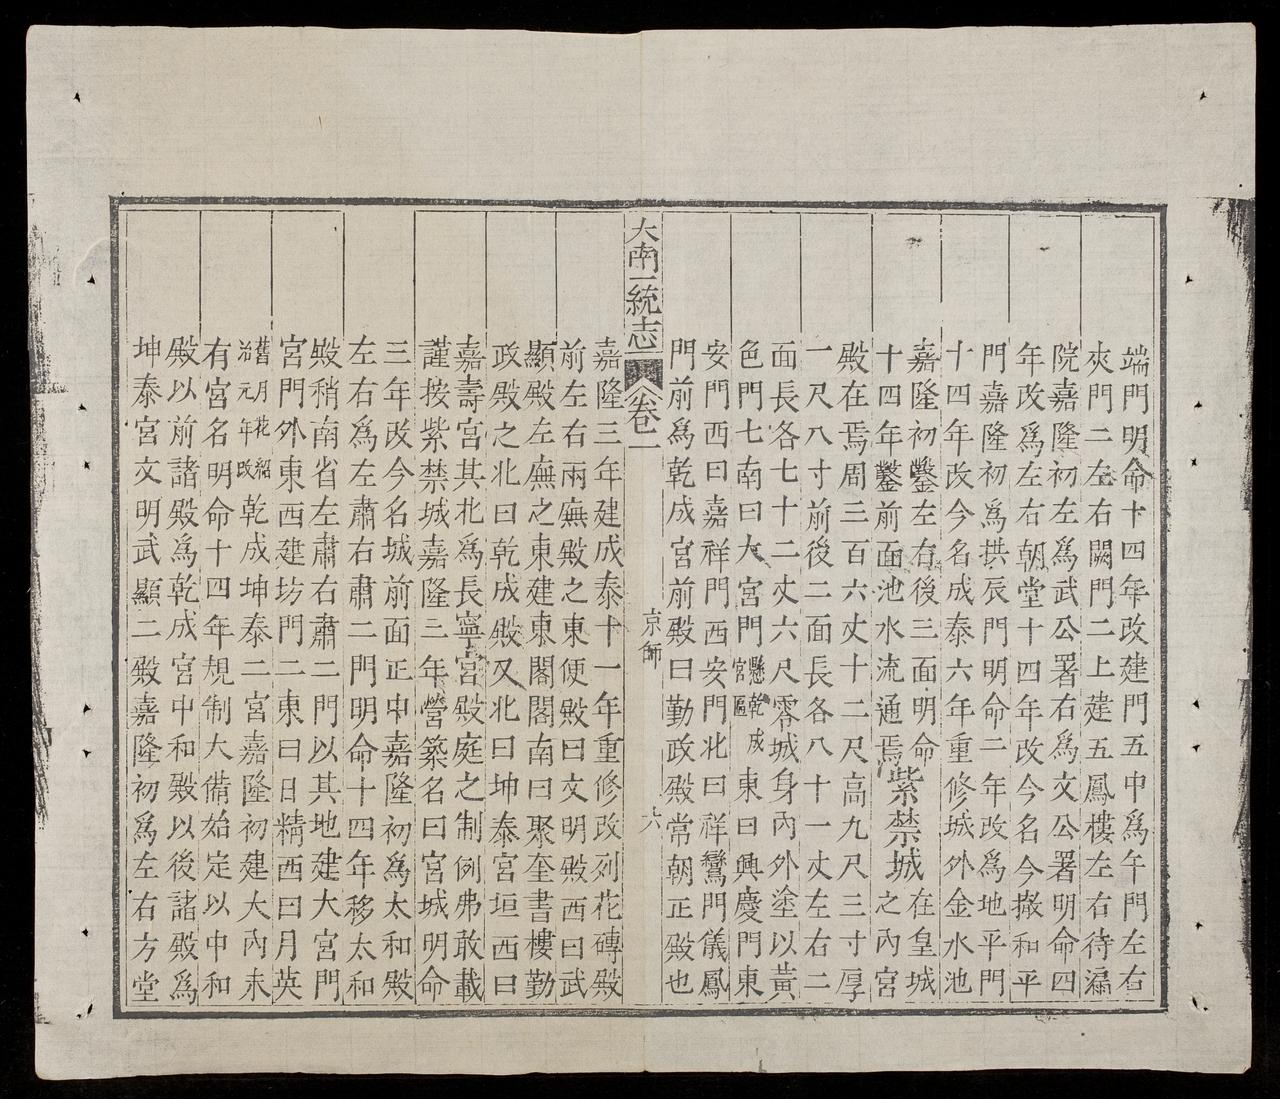 端門明命十四年改建門五中爲午門左右
夾門二左右闕門二上建五鳳樓左右待漏
院嘉隆初左爲武公署右爲文公署明命四
年改爲左右朝堂十四年改今名今撤和平
門嘉隆初爲拱辰門明命二年改爲地平門
十四年改今名成泰六年重修城外金水池
嘉隆初鑿左右後三面明命
十四年鑿前面池水流通焉紫禁城在皇城之內宮
殿在焉周三百六丈十二尺高九尺三寸厚
一尺八寸前後二面長各八十一丈左右二
面長各七十二丈六尺零城身內外塗以黃
色門七南曰大宮門懸乾成宮匾東曰興慶門東
安門西曰嘉祥門西安門北曰祥鸞門儀鳳
門前爲乾成宮前殿曰勤政殿常朝正殿也
大南一統志 卷一 京師 六
嘉隆三年建成泰十一年重修改列花磚殿
前左右兩廡殿之東便殿曰文明殿西曰武
顯殿左廡之東建東閣閣南曰聚奎書樓勤
政殿之北曰乾成殿又北曰坤泰宮垣西曰
嘉壽宮其北爲長寧宮殿庭之制例弗敢載
謹按紫禁城嘉隆三年營築名曰宮城明命
三年改今名城前面正中嘉隆初爲太和殿
左右爲左肅右肅二門明命十四年移太和
殿稍南省左肅右肅二門以其地建大宮門
宮門外東西建坊門二東曰日精西曰月英
舊月花紹治元年改乾成坤泰二宮嘉隆初建大內未
有宮名明命十四年規制大備始定以中和
殿以前諸殿爲乾成宮中和殿以後諸殿爲
坤泰宮文明武顯二殿嘉隆初爲左右方堂